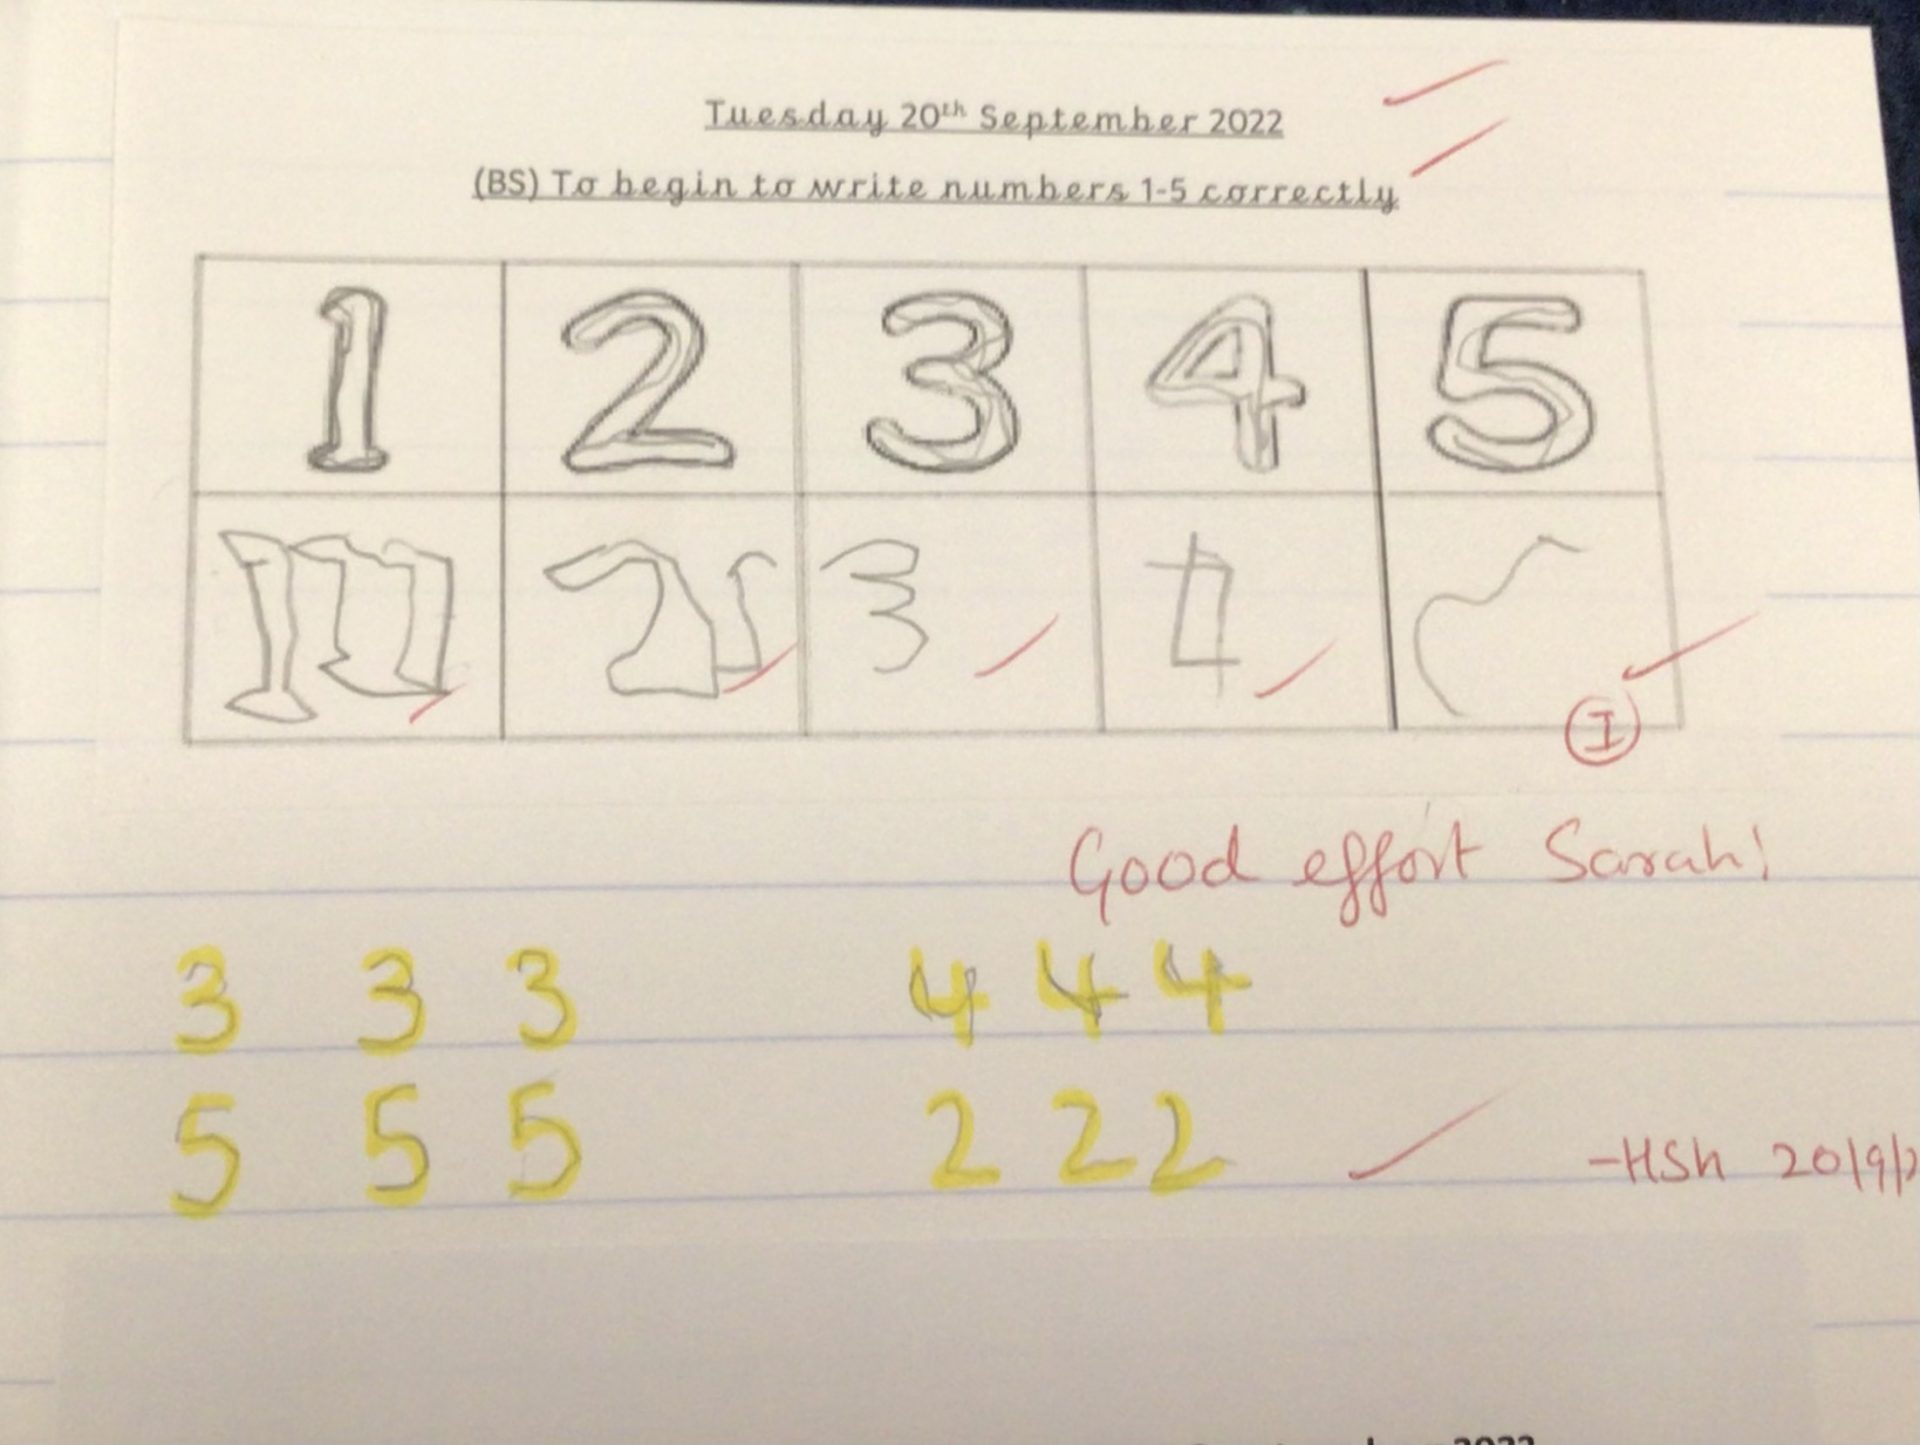 Tuesday 20th September 2022
(BS) To begin to write numbers 1-5 correctly
1 2 3 4 5
2 3 4
I
Good effort Sarah!
3 3 3 4 4 4
5 5 5 2 2 2
-HSh 20/9/2
2022